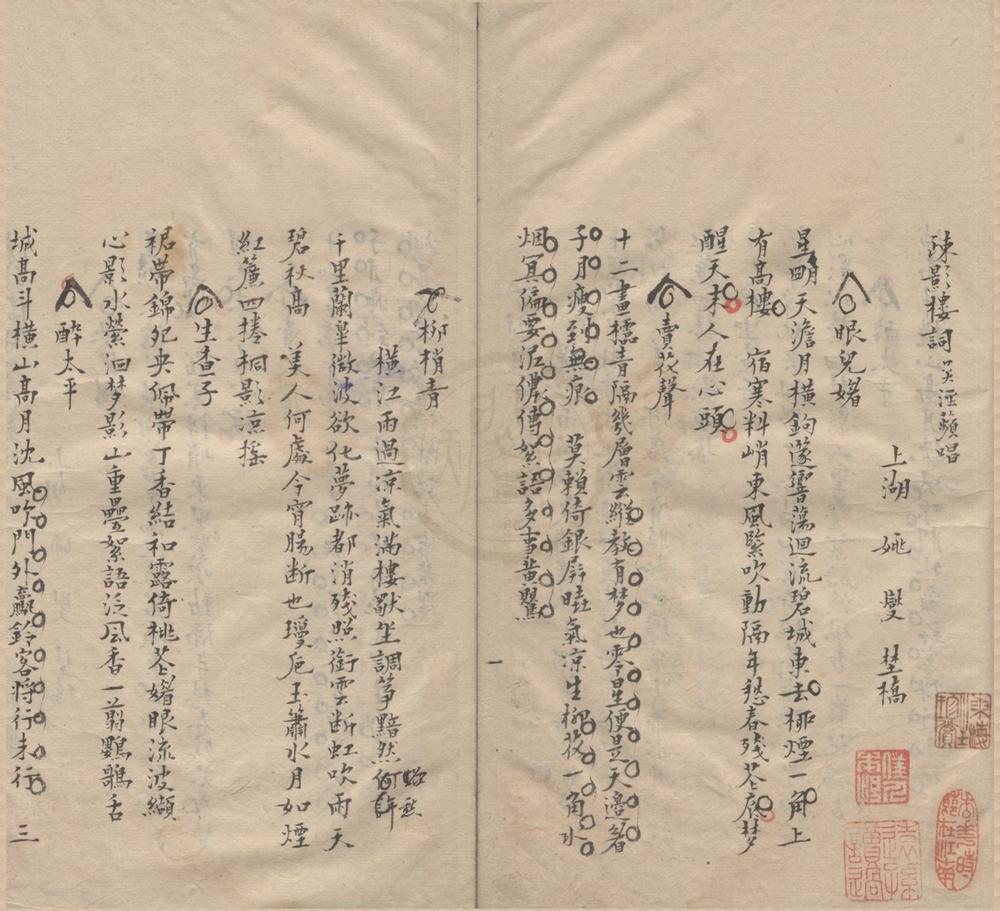 疎影樓詞 吴涇蘋唱
上湖 姚 燮 埜橋
眼兒媚
星明天澹月橫鉤邃響蕩迴流碧城東去極煙一角上
有高樓 宿寒料峭東風緊吹動隔年愁春殘苍底夢
醒天未人在心頭
賣花聲
十二畫櫺青隔幾層雲縱教有夢也零星便是天邊箸
子月瘦到無痕 莫賴倚銀屏暗氣涼生柳花一角水
烟冥偏要泥儂傳絮語多事黃鶯
柳梢青
橫江雨過凉氣滿樓歇坐調筝黯然何許
千里蘭皐微波欲化夢跡都消殘照銜雲断虹吹雨天
碧秋高 美人何處今宵腸断也瓊巵玉簫水月如煙
紅簾四捲桐影凉摇
生查子
裙帶錦夗央佩帶丁香結和露倚桃苍媚眼流波纈
心影水縈洄梦影山重疊絮語泛風香一翦鸚鵡舌
醉太平
城高斗橫山高月沈風吹門外贏鈴客將行未行
一
三